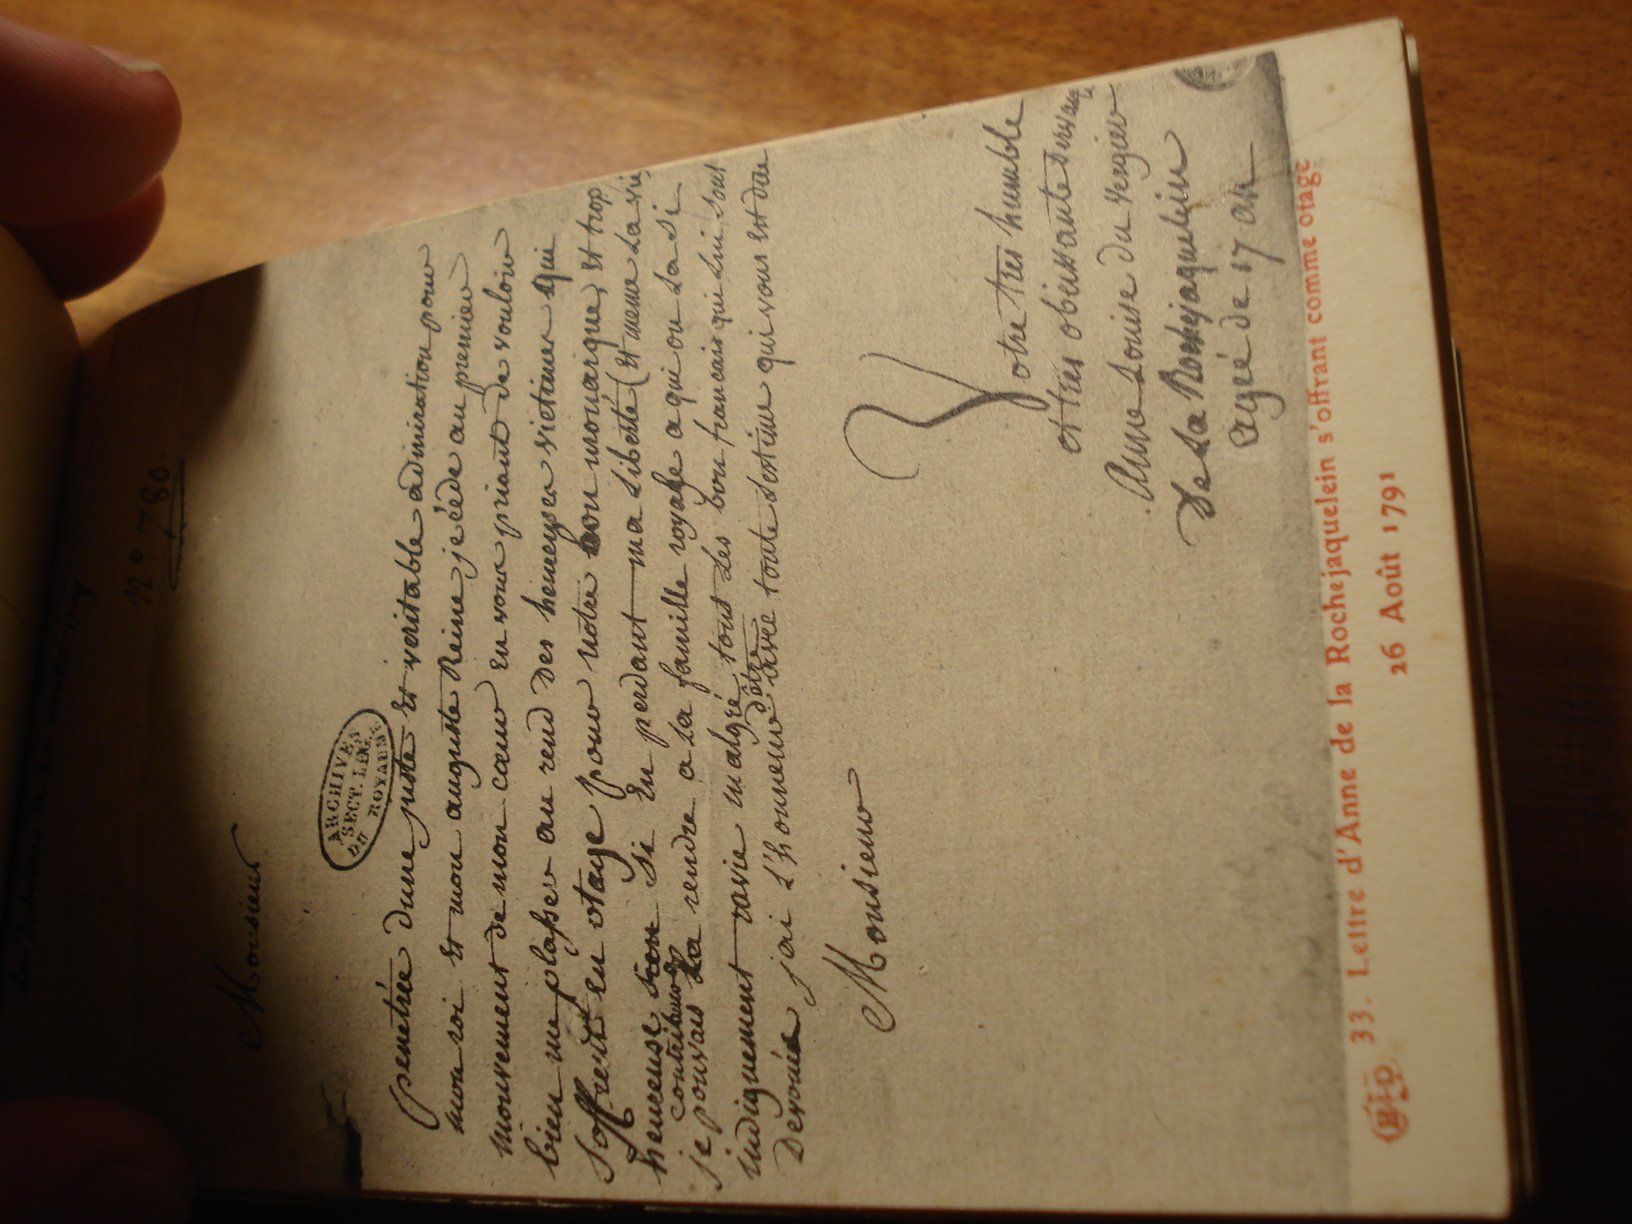 nº 780.
Monsieur
ARCHIVES
SECT. LEG.
DU ROYAUME
penetrée dune juste et veritable admiration pour
mon roi et mon auguste Reine je cède au premier
mouvement de mon cœur en vous priant de vouloir
bien me plaser au rend des heureuses victimes qui
soffrent en otage pour notre bon monarque, et trop
heureuse si en perdant ma liberté (et meme la vie
contribuer
je pouvais la rendre a la famille royale a qui on la si
indignement ravie malgré tout les bons francais qui lui sont
Devouée jai l'honneur dêtre avec toute lestime qui vous est due
Monsieur
Votre très humble
et très obeissante servante
Anne Louise du vergier
de La Rochejaquelein
agée de 17 an
33. Lettre d'Anne de la Rochejaquelein s'offrant comme otage
26 Août 1791